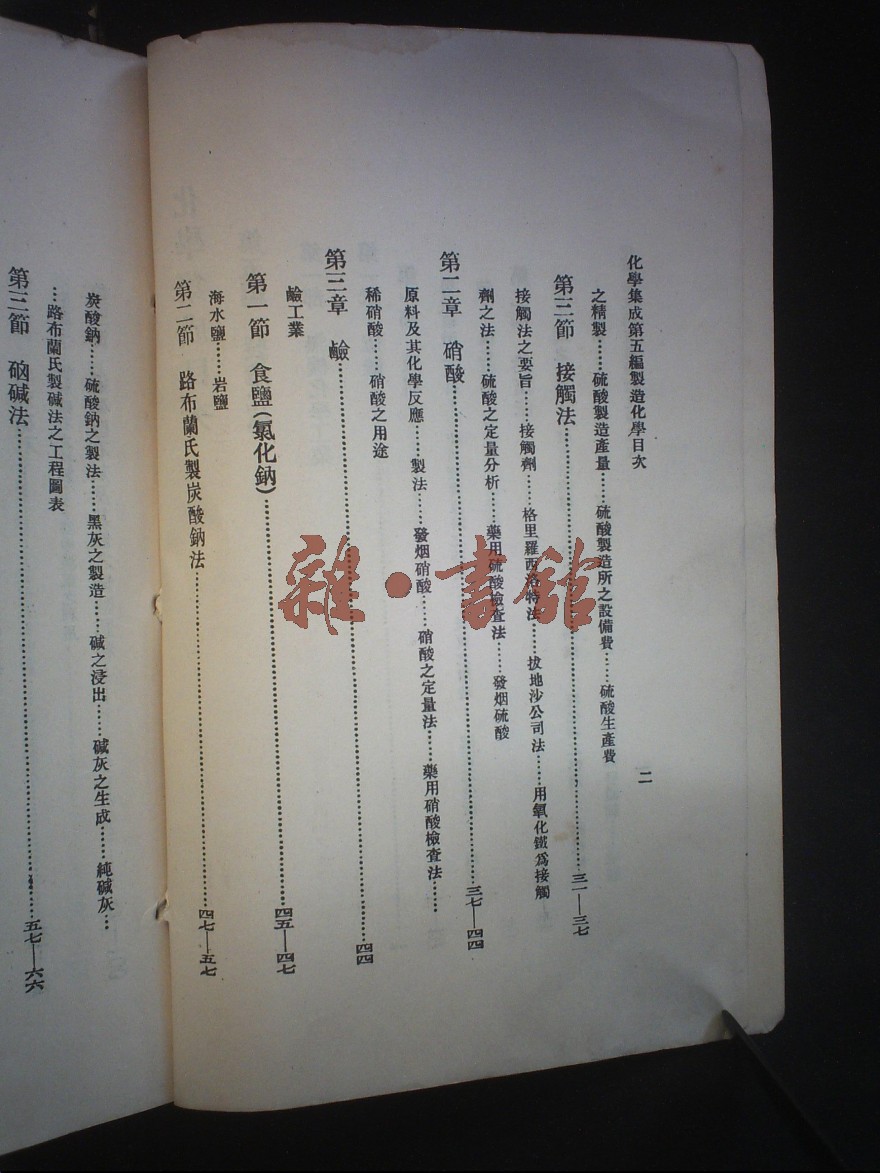 化學集成第五編製造化學目次
二
之精製……硫酸製造產量……硫酸製造所之設備費……硫酸生產費
第三節 接觸法……三一—三七
接觸法之要旨……接觸劑……格里羅西洛特法……拔地沙公司法……用氧化鐵爲接觸
劑之法……硫酸之定量分析……藥用硫酸檢查法……發烟硫酸
第二章 硝酸……三七—四四
原料及其化學反應……製法……發烟硝酸……硝酸之定量法……藥用硝酸檢查法……
稀硝酸……硝酸之用途
第三章 鹼……四四
鹼工業
第一節 食鹽(氯化鈉)……四五—四七
海水鹽……岩鹽
第二節 路布蘭氏製炭酸鈉法……四七—五七
炭酸鈉……硫酸鈉之製法……黑灰之製造……碱之浸出……碱灰之生成……純碱灰…
…路布蘭氏製碱法之工程圖表
第三節 硇碱法……五七—六六
雜·書館